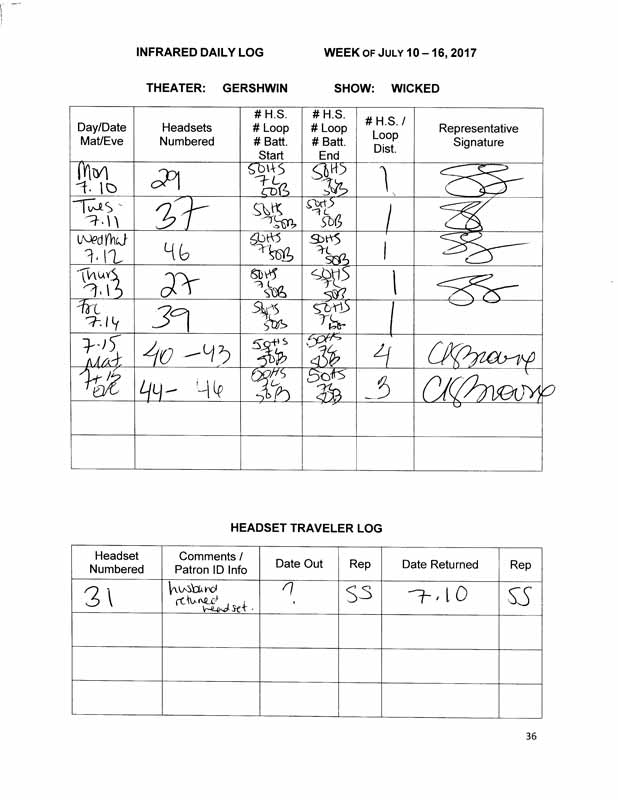 INFRARED DAILY LOG WEEK OF JULY 10 – 16, 2017
THEATER: GERSHWIN SHOW: WICKED
Day/Date Mat/Eve Headsets Numbered # H.S. # Loop # Batt. Start # H.S. # Loop # Batt. End # H.S. / Loop Dist. Representative Signature
Mon 7.10 29 50HS 7L 50B 50HS 7L 50B 1
Tues 7.11 37 50HS 7L 50B 50HS 7L 50B 1
Wed Mat 7.12 46 50HS 7L 50B 50HS 7L 50B 1
Thurs 7.13 27 50HS 7L 50B 50HS 7L 50B 1
7.14 39 50HS 7L 50B 50HS 7L 1
7.15 Mat 40 – 43 50HS 7L 50B 50HS 7L 50B 4
7.15 Eve 44 – 46 50HS 7L 50B 50HS 7L 50B 3
HEADSET TRAVELER LOG
Headset Numbered Comments / Patron ID Info Date Out Rep Date Returned Rep
31 husband returned headset. ? SS 7.10 SS
36